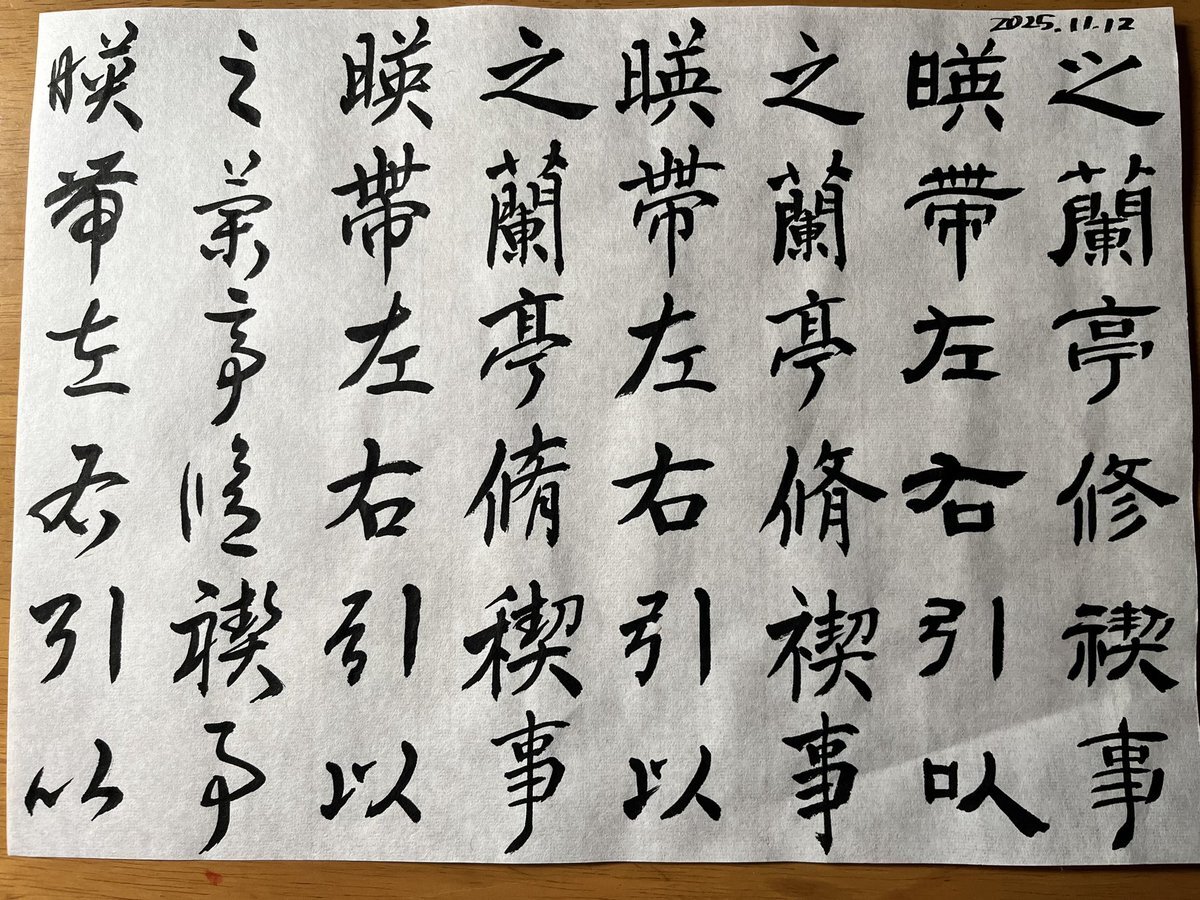 2025.11.12
之蘭亭修禊事
暎帶左右引以
之蘭亭脩禊事
暎帶左右引以
之蘭亭脩稧事
暎帶左右引以
之蘭亭脩禊事
暎帶左右引以